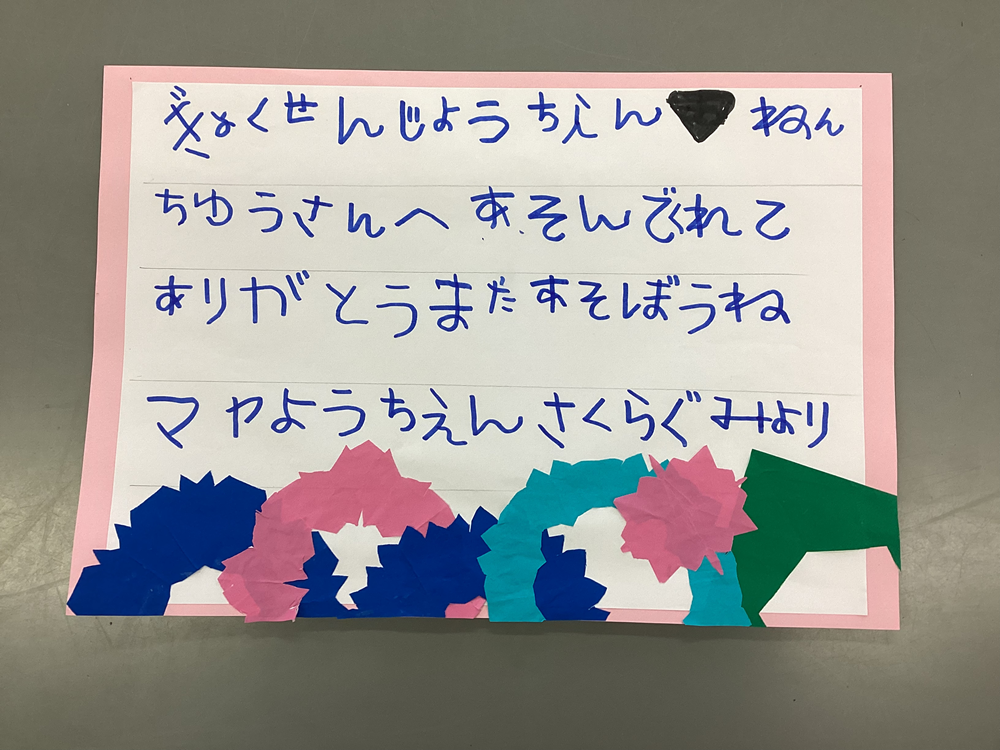 ぎょくせんじようちえん ねん
ちゆうさんへ あそんでくれて
ありがとうまたあそぼうね
マヤようちえんさくらぐみより